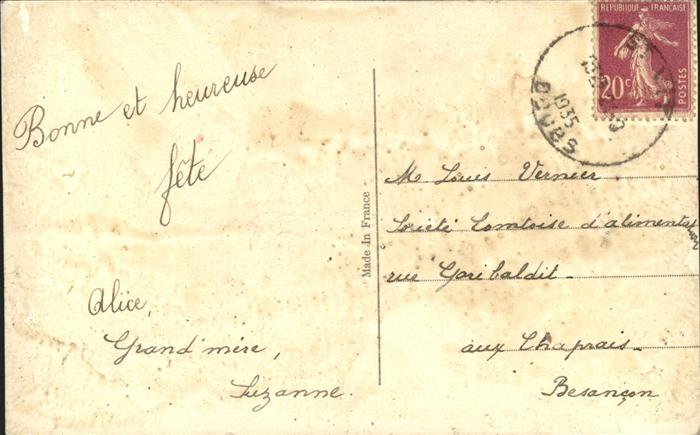 Bonne et heureuse
fête
Alice,
Grand'mère,
Suzanne.
Made In France
REPUBLIQUE FRANÇAISE
20c
POSTES
1935
DOUBS
M. Louis Vernier
Société Comtoise d'alimentation
rue Garibaldit-
aux Chaprais-
Besançon